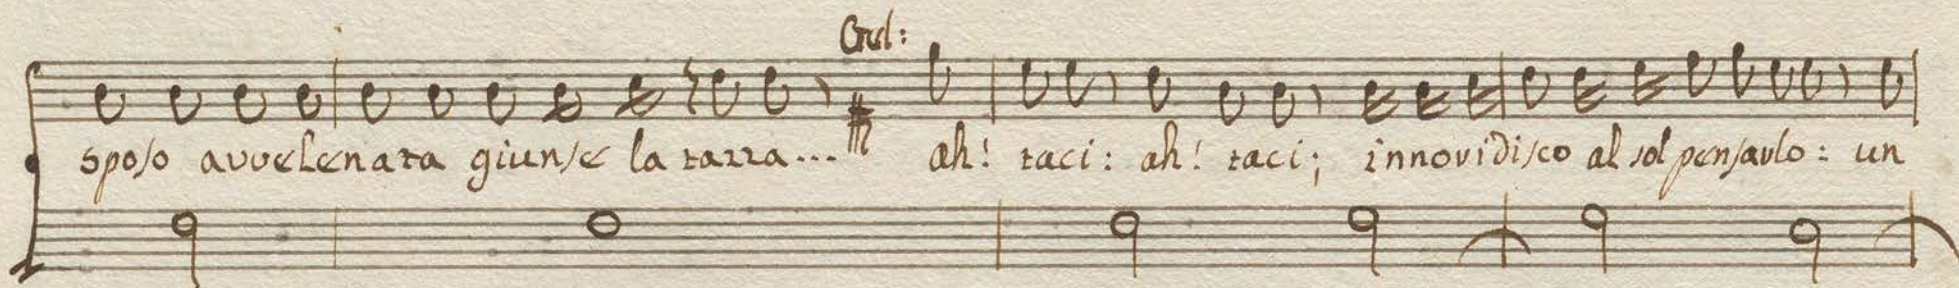 Giul:
sposo avvelenata giunse la tazza... ah! taci: ah! taci; innovidisco al sol pensarlo: un